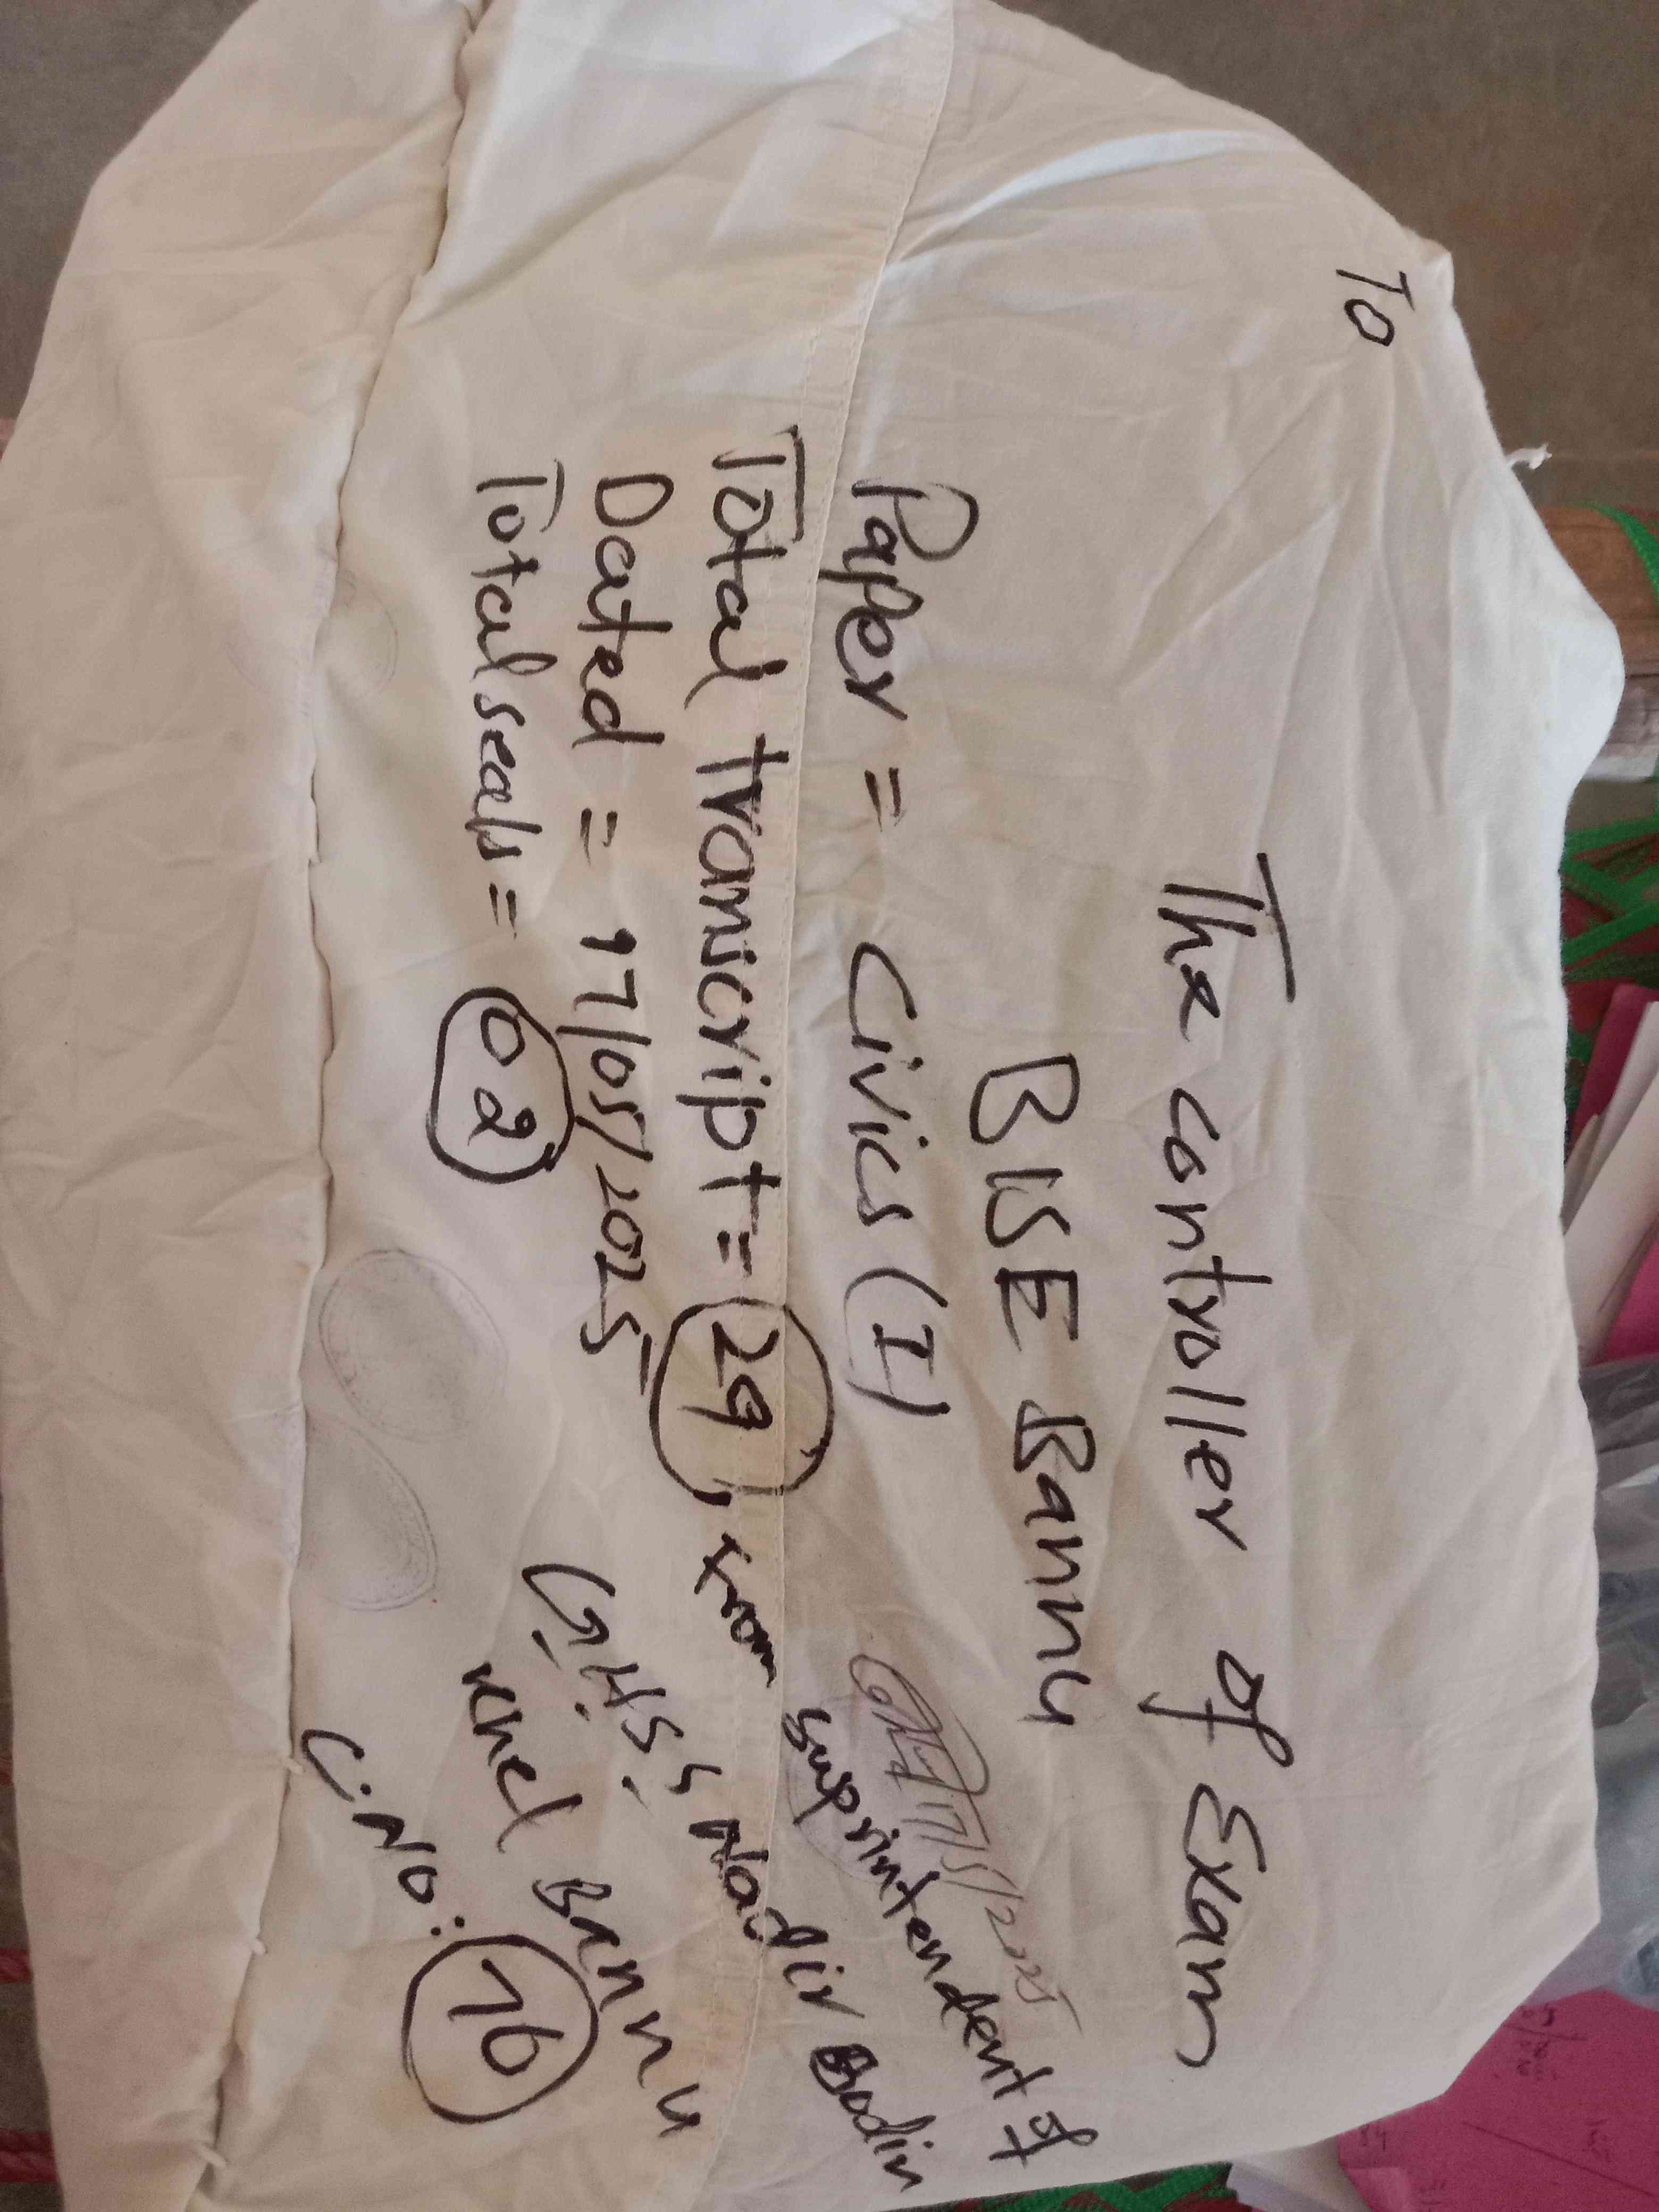 To
The controller of Exam
BISE Bannu
Paper = Civics (I)
Total transcript = 29
Dated = 17/05/2025
Total seals = 02
from
17/5/2025
Suprintendent of
G.H.S.S Nadir Bodin
Khel Bannu
C.No: 76